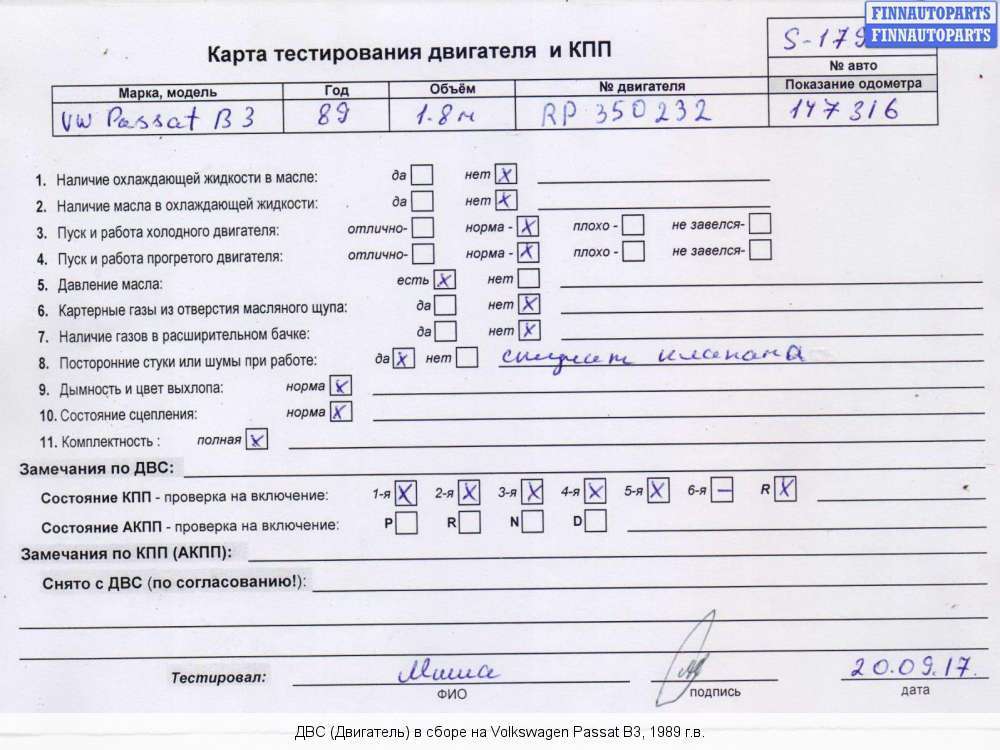 FINNAUTOPARTS
FINNAUTOPARTS
Карта тестирования двигателя и КПП
S-179
№ авто
Марка, модель Год Объём № двигателя Показание одометра
VW Passat B3 89 1.8м RP 350232 147316
1. Наличие охлаждающей жидкости в масле: да нет X
2. Наличие масла в охлаждающей жидкости: да нет X
3. Пуск и работа холодного двигателя: отлично- норма - X плохо - не завелся-
4. Пуск и работа прогретого двигателя: отлично- норма - X плохо - не завелся-
5. Давление масла: есть X нет
6. Картерные газы из отверстия масляного щупа: да нет X
7. Наличие газов в расширительном бачке: да нет X
8. Посторонние стуки или шумы при работе: да X нет стучат клапана
9. Дымность и цвет выхлопа: норма X
10. Состояние сцепления: норма X
11. Комплектность : полная X
Замечания по ДВС:
Состояние КПП - проверка на включение: 1-я X 2-я X 3-я X 4-я X 5-я X 6-я – R X
Состояние АКПП - проверка на включение: P R N D
Замечания по КПП (АКПП):
Снято с ДВС (по согласованию!):
Тестировал: Миша 20.09.17.
ФИО подпись дата
ДВС (Двигатель) в сборе на Volkswagen Passat B3, 1989 г.в.